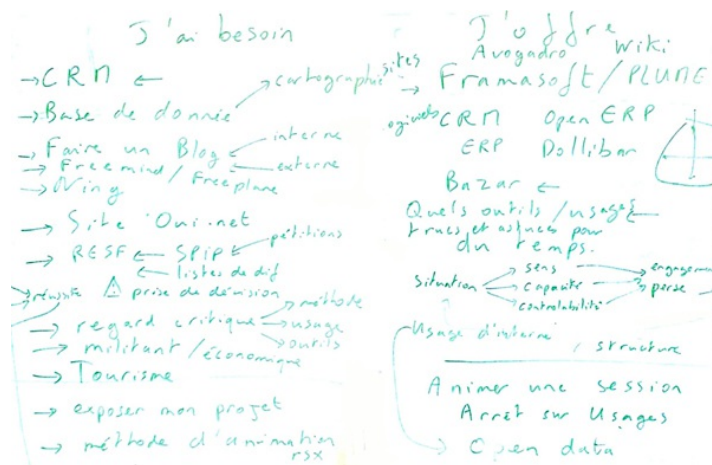 J'ai besoin
→ CRM ←
→ Base de donnée → cartographie
→ Faire un Blog ← interne
← externe
→ Freemind / Freeplane
→ Ning
→ Site Oui.net
→ RESF ← SPIP ← pétitions
← listes de dif
→ réussite ⚠ prise de décision
→ regard critique → méthode
→ usage
→ outils
→ militant / économique
→ Tourisme
→ exposer mon projet
→ méthode d'animation
rsx
J'offre
Avogadro Wiki
sites → Framasoft / PLUME
CRM Open ERP
ERP Dollibar
Bazar ←
Quels outils / usages ←
trucs et astuces pour
du temps.
situation → sens → engagement
→ capacité →
→ controlabilité
Usage d'interne
/ structure
Animer une session
Arrêt sur Usages
→ Open data